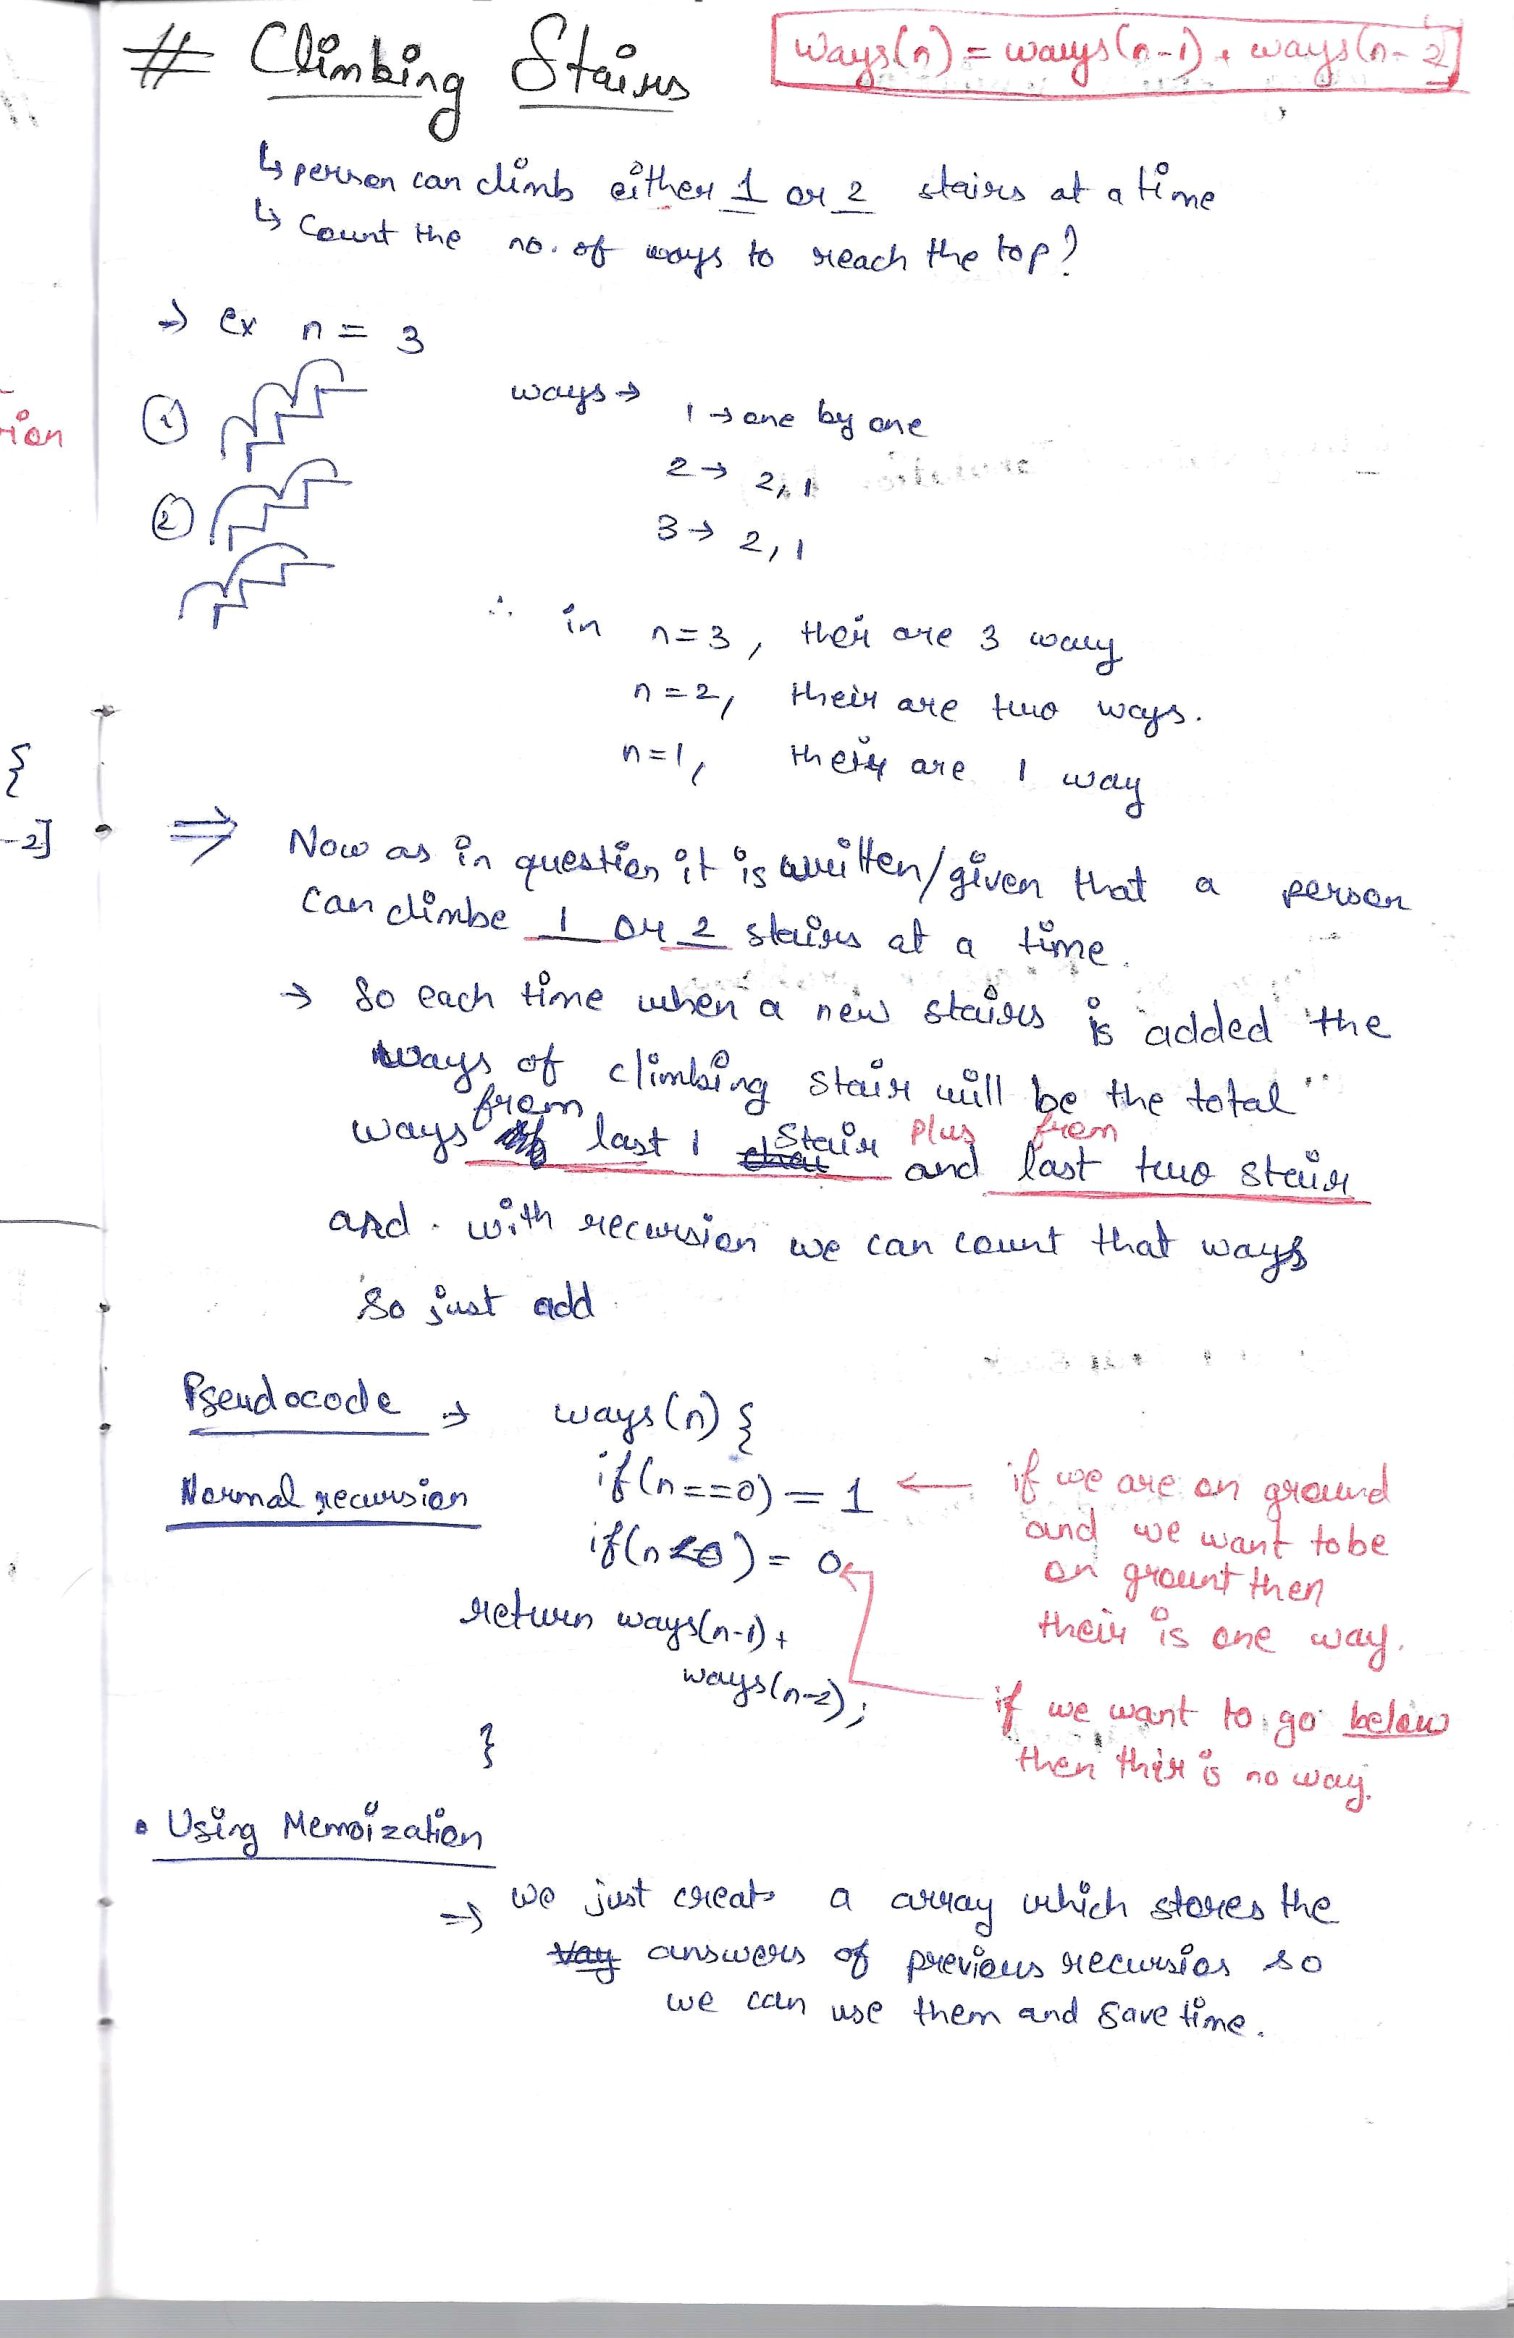 # Climbing Stairs
ways(n) = ways(n-1) + ways(n-2)
↳ person can climb either 1 or 2 stairs at a time
↳ Count the no. of ways to reach the top?
→ ex n = 3
①
ways → 1 → one by one
2 → 2, 1
②
3 → 2, 1
∴ in n=3, their are 3 way
n=2, their are two ways.
n=1, their are 1 way
⇒ Now as in question it is written/given that a person
can climbe 1 or 2 stairs at a time.
→ So each time when a new stairs is added the
ways of climbing stair will be the total
ways from last 1 stair plus and from last two stair
and with recursion we can count that ways
so just add
Pseudocode → ways(n) {
Normal recursion
if(n==0) = 1 ← if we are on ground
and we want to be
on grount then
their is one way.
if(n<0) = 0
return ways(n-1) +
ways(n-2);
if we want to go below
then their is no way.
}
• Using Memoization
⇒ we just create a array which stores the
answers of previous recursion so
we can use them and save time.
rion
{
-2]